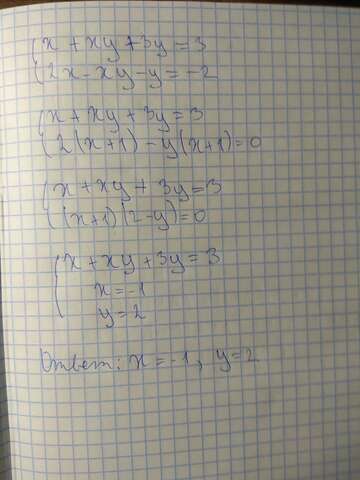 x + xy + 3y = 3
2x - xy - y = -2
x + xy + 3y = 3
2(x+1) - y(x+1) = 0
x + xy + 3y = 3
(x+1)(2-y) = 0
x + xy + 3y = 3
x = -1
y = 2
Ответ: x = -1, y = 2